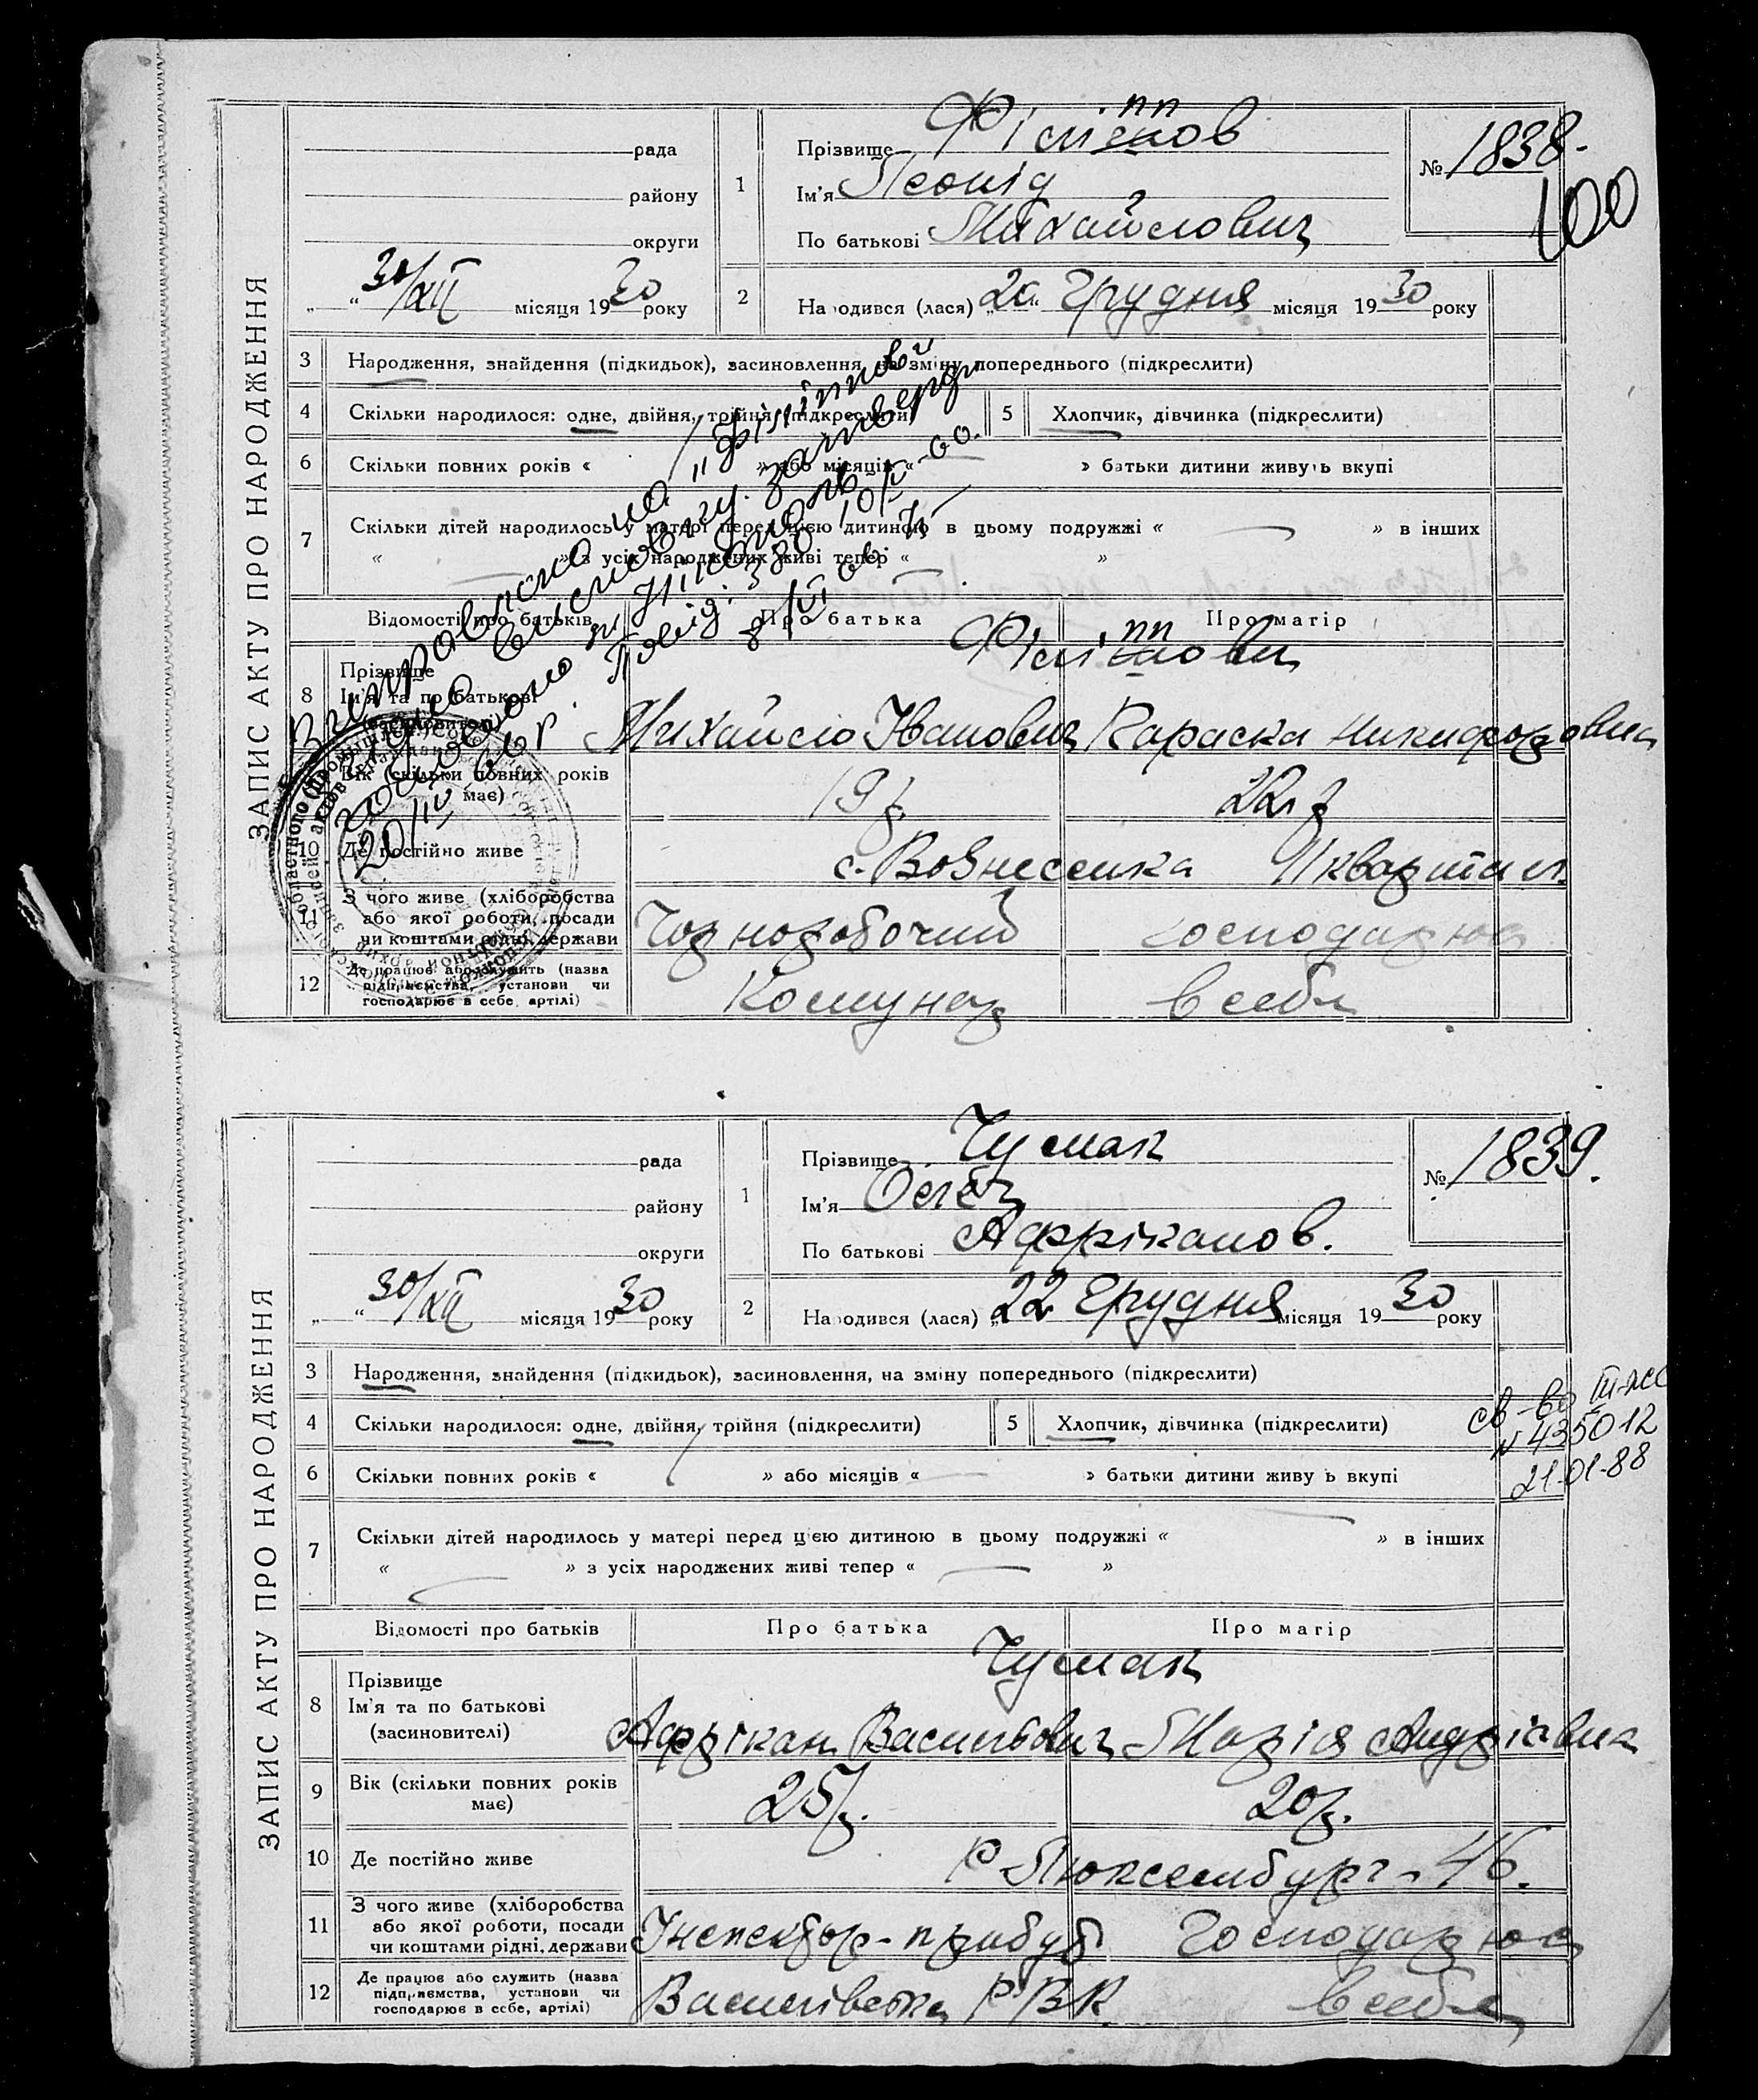 ЗАПИС АКТУ ПРО НАРОДЖЕННЯ
рада
району
округи
„ “ 30/XII місяця 1930 року
1
Прізвище Філіппов
Ім'я Леонід
По батькові Михайлович
№ 1838.
100
2
Народився (лася) „20“ Грудня місяця 1930 року
3 Народження, знайдення (підкидьок), засиновлення, на зміну попереднього (підкреслити)
4 Скільки народилося: одне, двійня, трійня (підкреслити)
5 Хлопчик, дівчинка (підкреслити)
6 Скільки повних років « » або місяців « » батьки дитини живуть вкупі
7 Скільки дітей народилось у матері перед цією дитиною в цьому подружжі « » в інших
« » з усіх народжених живі тепер « »
Виправлено на „Філіппов“
Відомості про батьків Про батька Про матір
8 Прізвище
Ім'я та по батькові
(засиновителі)
Філіппови
Михайло Іванович Параска Никифоровна
Вік (скільки повних років має) 19 р. 22 р
10 Де постійно живе с. Вознесенка 11 квартал.
11 З чого живе (хліборобства або якої роботи, посади чи коштами рідні, держави Чорноробочий господарює
12 Де працює або служить (назва підприємства, установи чи господарює в себе, артілі) Комунар в себе
ЗАПИС АКТУ ПРО НАРОДЖЕННЯ
рада
району
округи
„ “ 30/XII місяця 1930 року
1
Прізвище Чумак
Ім'я Олег
По батькові Афріканов.
№ 1839.
2
Народився (лася) „22 Грудня місяця 1930 року
3 Народження, знайдення (підкидьок), засиновлення, на зміну попереднього (підкреслити)
4 Скільки народилося: одне, двійня, трійня (підкреслити)
5 Хлопчик, дівчинка (підкреслити)
св-во III-ЖС
N 435012
21-01-88
6 Скільки повних років « » або місяців « » батьки дитини живу ь вкупі
7 Скільки дітей народилось у матері перед цією дитиною в цьому подружжі « » в інших
« » з усіх народжених живі тепер « »
Відомості про батьків Про батька Про матір
8 Прізвище
Ім'я та по батькові
(засиновителі)
Чумак
Афрікан Васильович Марія Андріївна
9 Вік (скільки повних років має) 25 р. 20 р.
10 Де постійно живе Р Люксембург - 46.
11 З чого живе (хліборобства або якої роботи, посади чи коштами рідні, держави Інспектор- Господарює
12 Де працює або служить (назва підприємства, установи чи господарює в себе, артілі) Василівська РВК. в себе